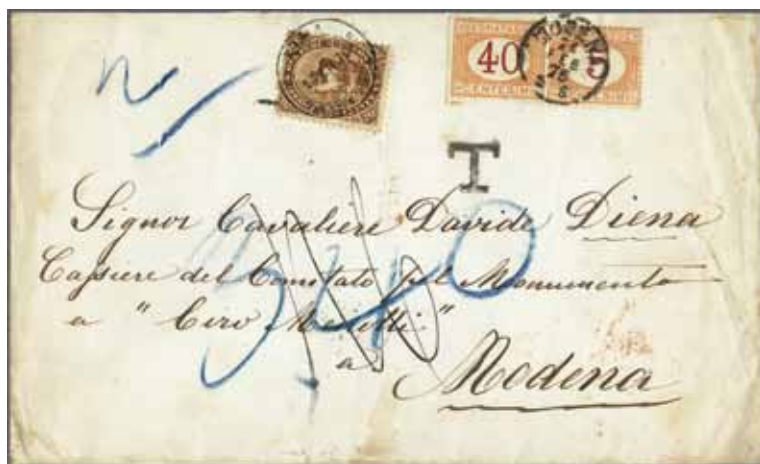 40
MODENA
T
Signor Cavaliere Davide Diena
Cassiere del Comitato pel Monumento
a " Ciro Menotti "
a
Modena
540